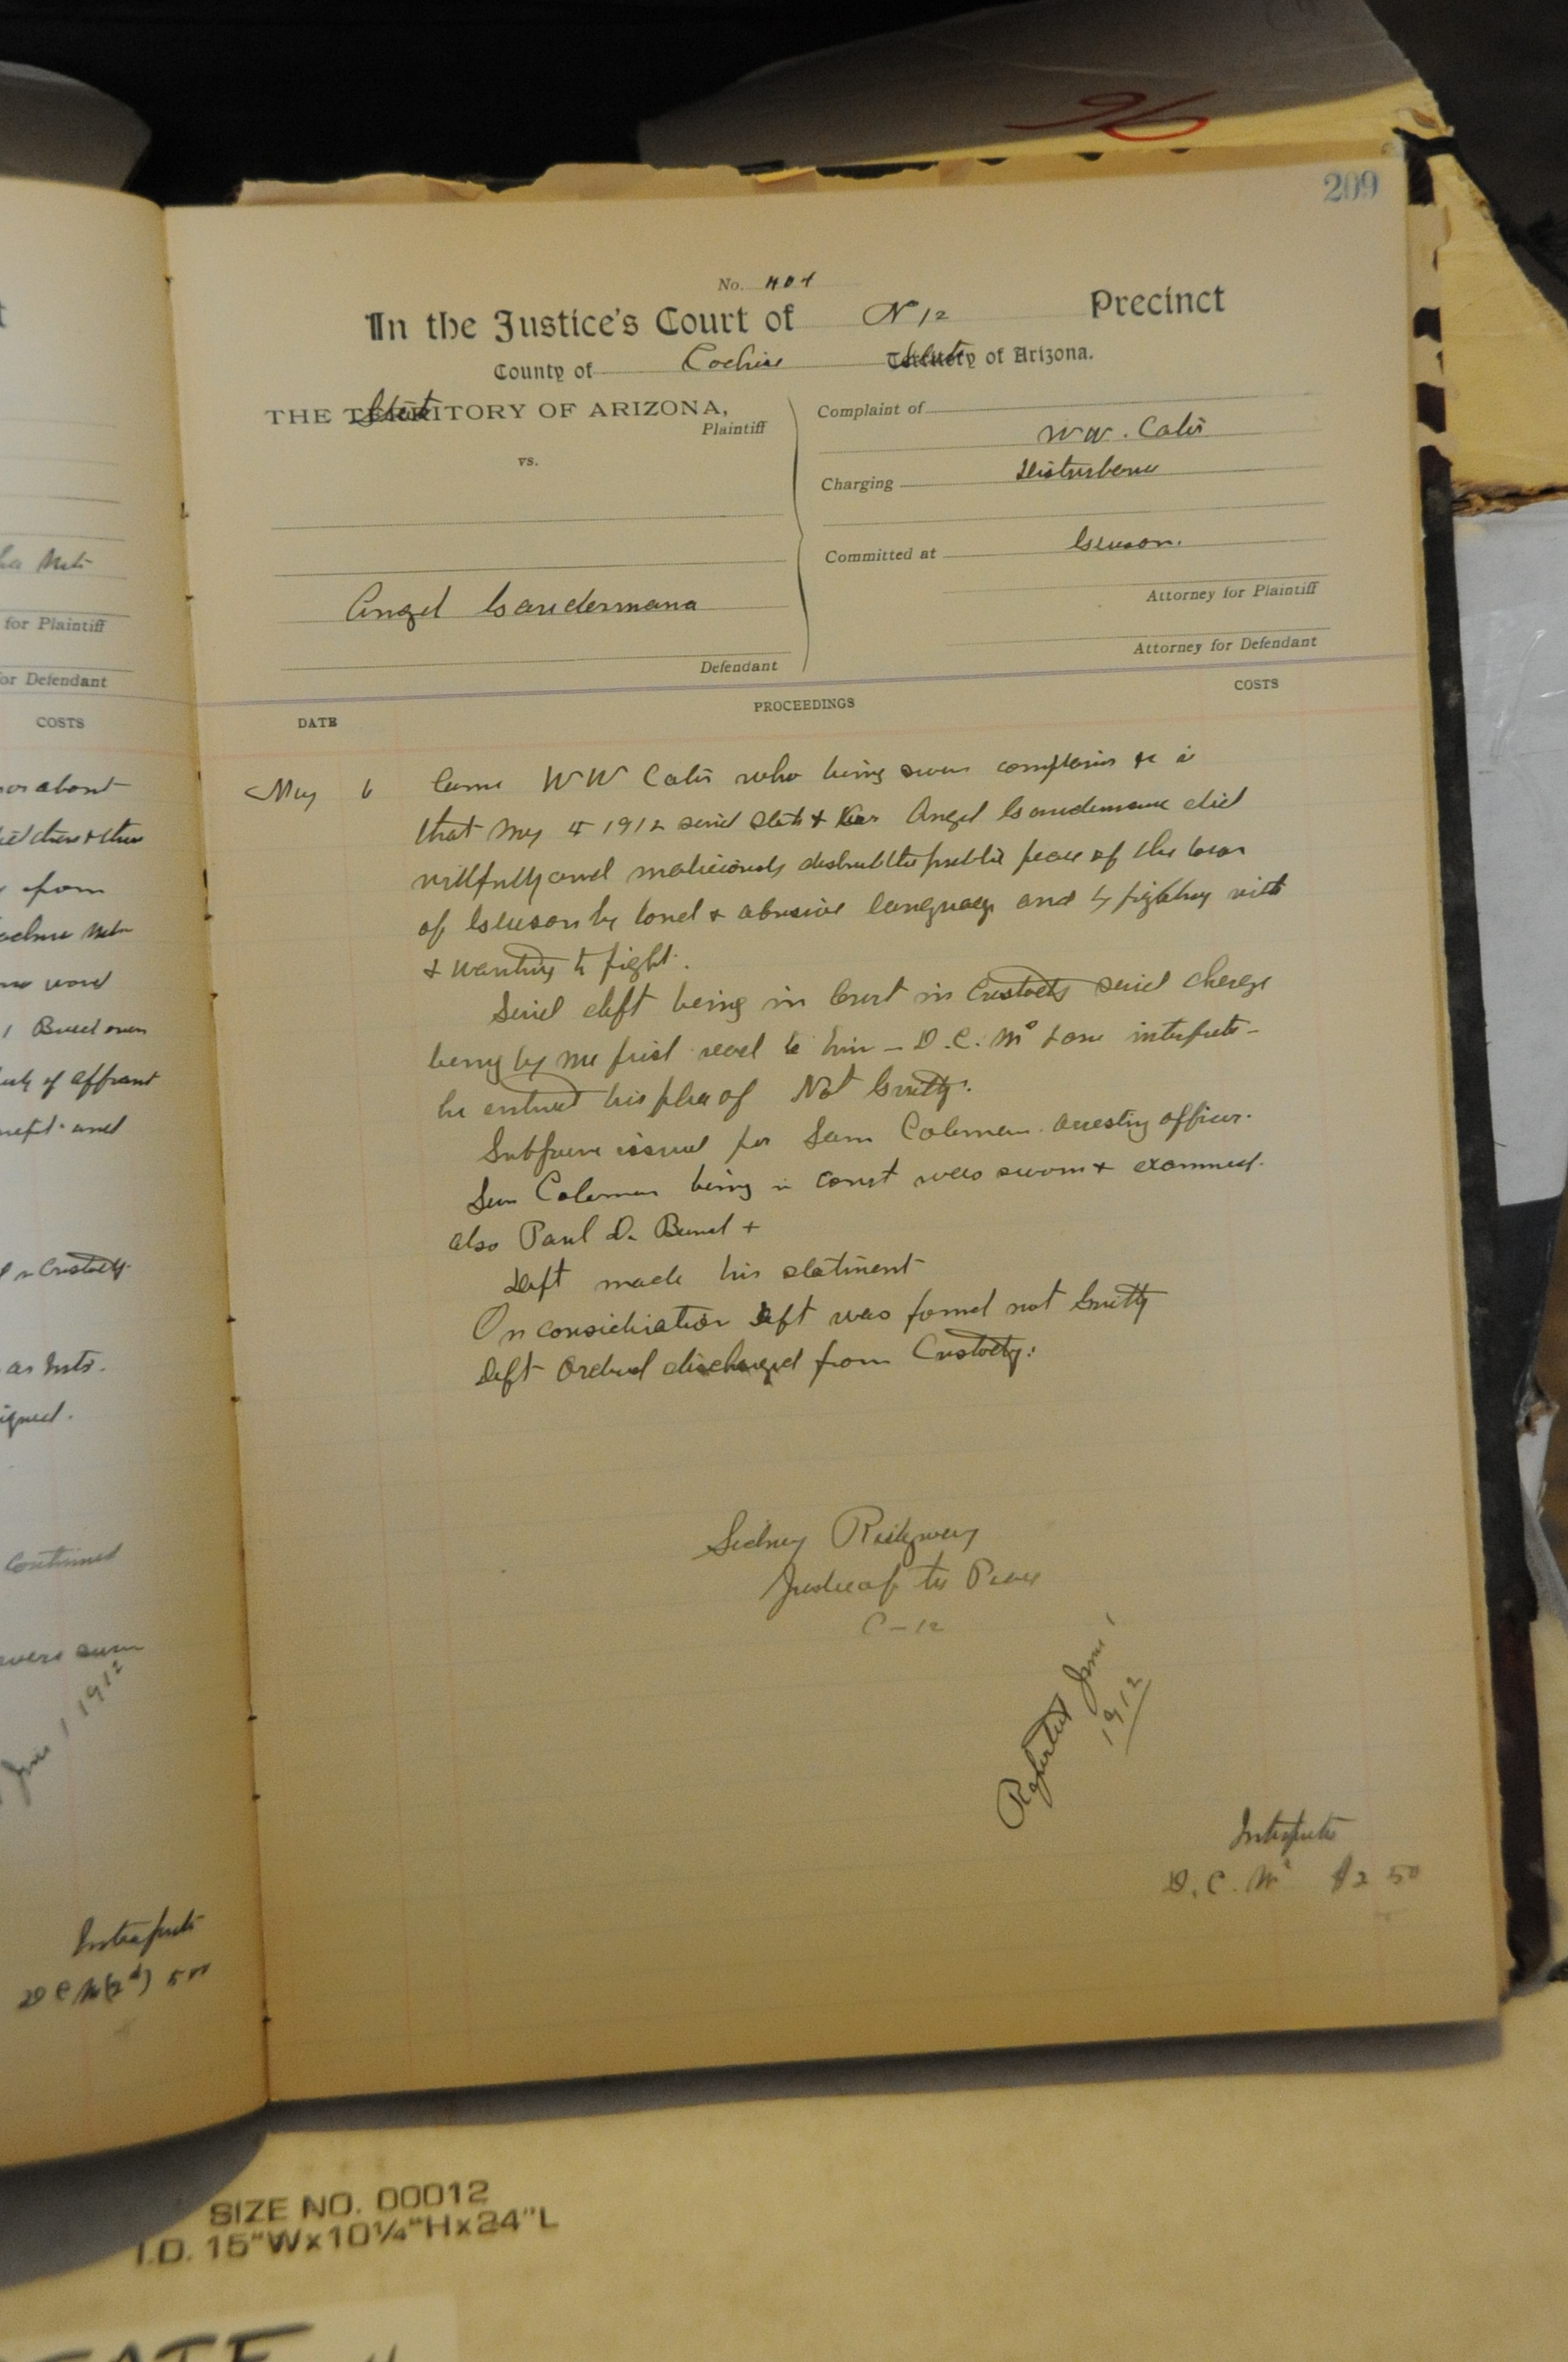 96
209
No. 401
In the Justice's Court of N 12 Precinct
County of Cochise State of Arizona.
THE State OF ARIZONA,
Plaintiff
vs.
Angel Gandermana
Defendant
Complaint of
W W. Cates
Charging Disturbance
Committed at Gleeson.
Attorney for Plaintiff
Attorney for Defendant
DATE PROCEEDINGS COSTS
May 6 Came W W Cates who being sworn complains &
that May 4 1912 said State & Angel did
willfully and maliciously disturb the public peace of the town
of Gleeson by loud & abusive language and by fighting with
& wanting to fight.
Said deft being in Court in Custody said charge
being by me first read to him – D. C. Mc interpreter –
he entered his plea of Not Guilty.
Subpoena issued for Sam Coleman arresting officer.
Sam Coleman being in court was sworn & examined.
also Paul D. +
Deft made his statement
On consideration deft was found not Guilty
Deft Ordered discharged from Custody.
Sidney Ridgway
Justice of the Peace
C – 12
Reported June 1
1912
Interpreter
D. C. Mc $2 50
ha
for Plaintiff
or Defendant
COSTS
or about
then & there
from
word
of affiant
and
n Custody
as
signed.
Continued
sum
June 1 1912
Interpreter
D C M (2d) 5 00
SIZE NO. 00012
I.D. 15"Wx10¼"Hx24"L